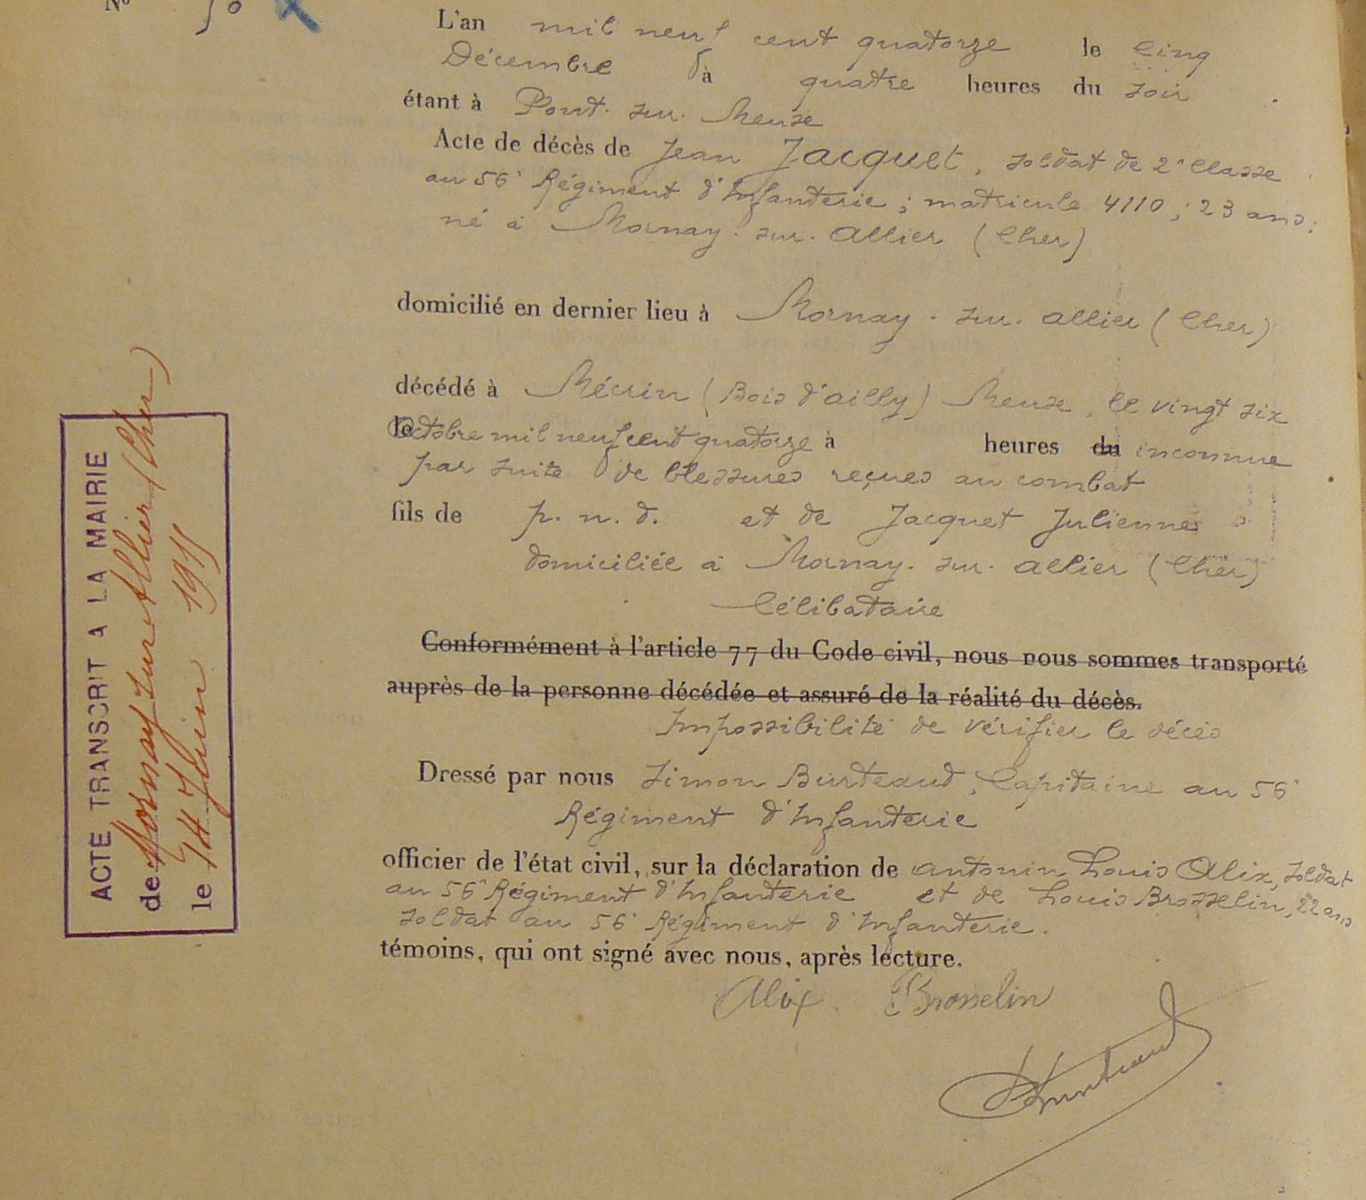 No 50
L'an mil neuf cent quatorze le Cinq
Décembre à quatre heures du soir
étant à Pont. sur. Meuse
Acte de décès de Jean Jacquet, soldat de 2e classe
au 56e Régiment d'Infanterie ; matricule 4110 ; 23 ans ;
né à Mornay. sur. Allier (Cher)
domicilié en dernier lieu à Mornay. sur. Allier (Cher)
décédé à Mécrin (Bois d'ailly) Meuse, le vingt six
Octobre mil neuf cent quatorze à heures du inconnue
par suite de blessures reçues au combat
fils de p. n. d. et de Jacquet Julienne
domiciliée à Mornay. sur. Allier (Cher)
Célibataire
Conformément à l'article 77 du Code civil, nous nous sommes transporté
auprès de la personne décédée et assuré de la réalité du décès.
Impossibilité de vérifier le décès
Dressé par nous Simon Burteaud, Capitaine au 56e
Régiment d'Infanterie
officier de l'état civil, sur la déclaration de Antonin Louis Alix, soldat
au 56e Régiment d'Infanterie et de Louis Brosselin, 22 ans
soldat au 56e Régiment d'Infanterie.
témoins, qui ont signé avec nous, après lecture.
Alix. Brosselin
Burteaud
ACTE TRANSCRIT A LA MAIRIE
de Mornay sur Allier (Cher)
le 14 Juin 1915